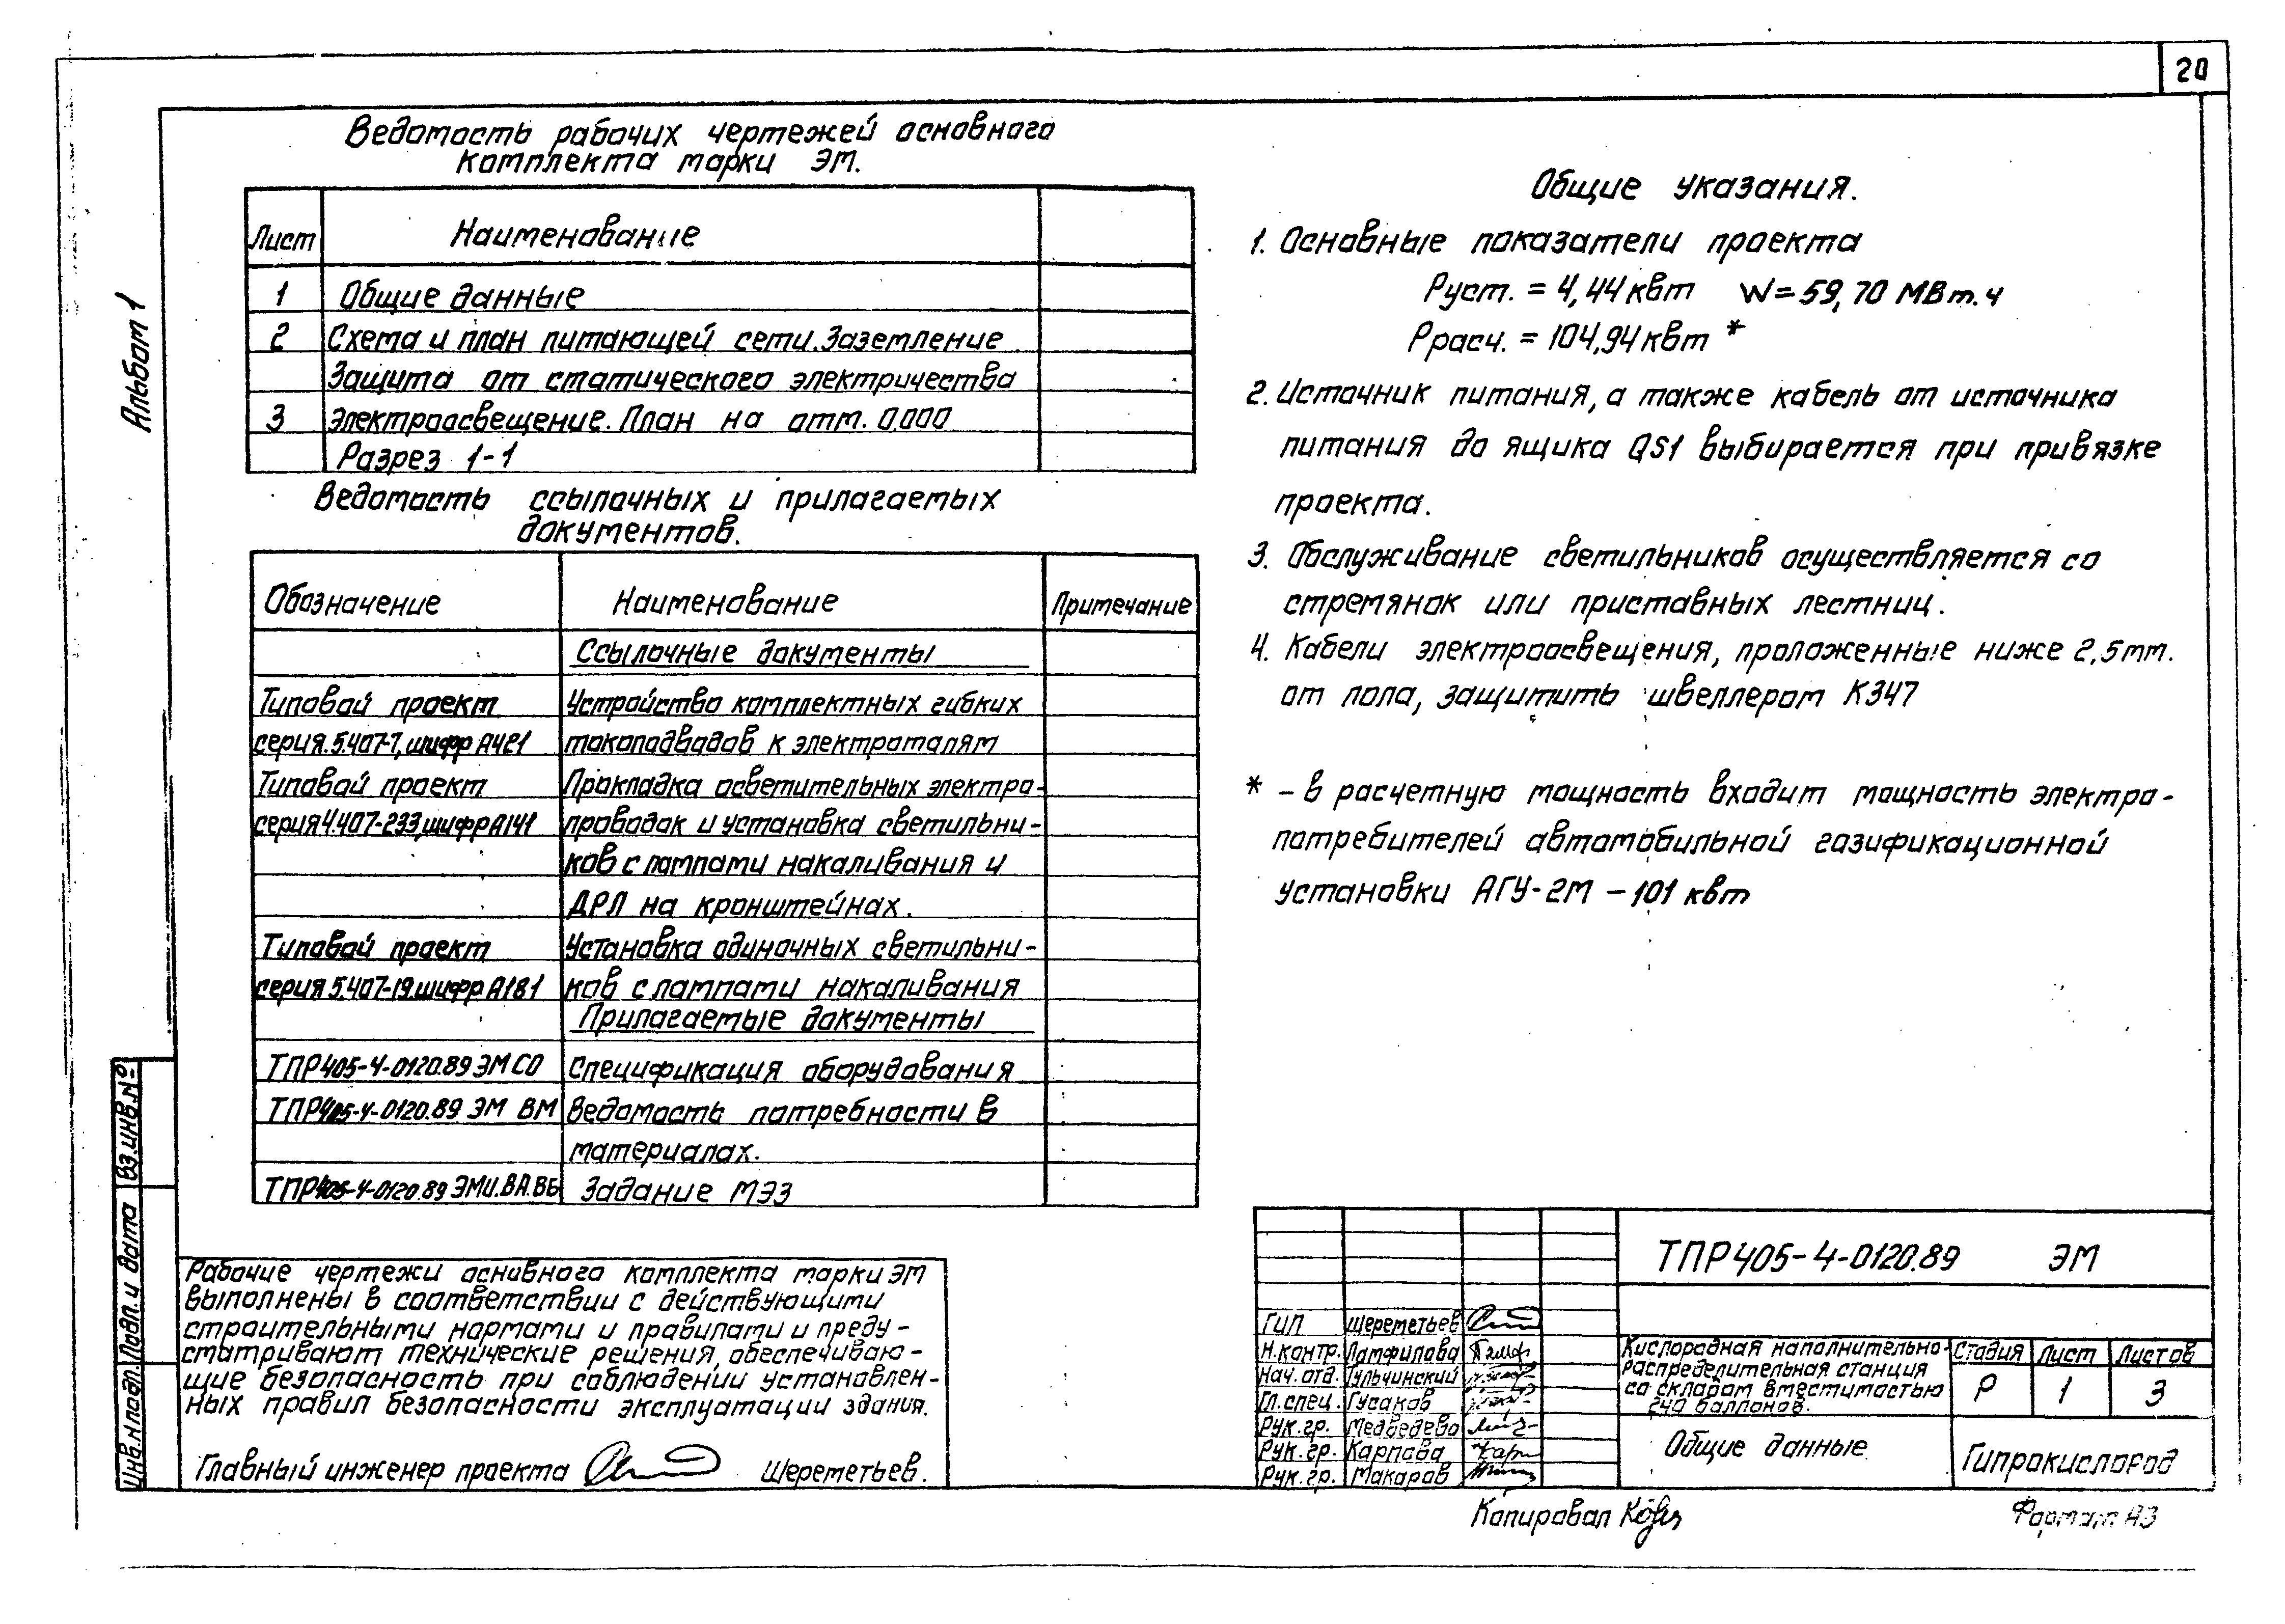 20
Альбом 1
Ведомость рабочих чертежей основного
комплекта марки ЭМ.
Лист Наименование
1 Общие данные
2 Схема и план питающей сети. Заземление
Защита от статического электричества
3 Электроосвещение. План на отм. 0.000
Разрез 1-1
Ведомость ссылочных и прилагаемых
документов.
Обозначение Наименование Примечание
Ссылочные документы
Типовой проект Устройство комплектных гибких
серия.5.407-7, шифр А421 токоподводов к электроталям
Типовой проект Прокладка осветительных электро-
серия 4.407-233, шифр А141 проводок и установка светильни-
ков с лампами накаливания и
ДРЛ на кронштейнах.
Типовой проект Установка одиночных светильни-
серия 5.407-19. шифр А181 ков с лампами накаливания
Прилагаемые документы
ТПР 405-4-0120.89 ЭМ СО Спецификация оборудования
ТПР 405-4-0120.89 ЭМ ВМ Ведомость потребности в
материалах.
ТПР 405-4-0120.89 ЭМИ.ВА.ВБ Задание МЭЗ
Общие указания.
1. Основные показатели проекта
Руст. = 4,44 квт W = 59,70 МВт.ч
Ррасч. = 104,94 квт *
2. Источник питания, а также кабель от источника
питания до ящика QS1 выбирается при привязке
проекта.
3. Обслуживание светильников осуществляется со
стремянок или приставных лестниц.
4. Кабели электроосвещения, проложенные ниже 2,5 мт.
от пола, защитить швеллером К347
* - в расчетную мощность входит мощность электро-
потребителей автомобильной газификационной
установки АГУ-2М - 101 квт
Рабочие чертежи основного комплекта марки ЭМ
выполнены в соответствии с действующими
строительными нормами и правилами и преду-
сматривают технические решения, обеспечиваю-
щие безопасность при соблюдении установлен-
ных правил безопасности эксплуатации здания.
Главный инженер проекта Шереметьев.
Взам.инв.№
Подп. и дата
Инв.№подл.
ТПР 405-4-0120.89 ЭМ
ГИП Шереметьев
Н.контр. Памфилова
Нач. отд. Гульчинский
Гл. спец. Гусаков
Рук. гр. Медведева
Рук. гр. Карпова
Рук. гр. Макаров
Кислородная наполнительно-
распределительная станция
со складом вместимостью
240 баллонов.
Стадия Лист Листов
Р 1 3
Общие данные
Гипрокислород
Копировал
Формат А3